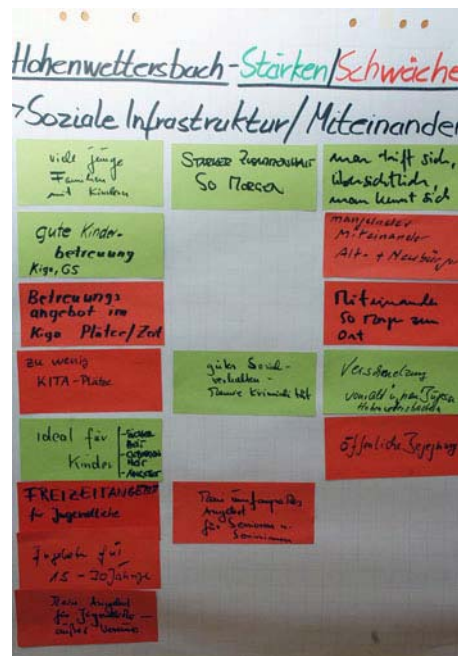 Hohenwettersbach - Stärken/Schwäche
>Soziale Infrastruktur/Miteinander
viele junge
Familien
mit Kindern
gute Kinder-
betreuung
Kiga, GS
Betreuungs
angebot im
Kiga Plätze/Zeit
zu wenig
KITA-Plätze
ideal für
Kinder
FREIZEITANGEBOT
für Jugendliche
für
15-30 Jährige
Kein Angebot
für Jugendliche
außer Vereine
STARKER ZUSAMMENHALT
50 MORGEN
gutes Sozial-
verhalten -
Kriminalität
Kein umfangreiches
Angebot
für Senioren u.
Seniorinnen
man trifft sich,
übersichtlich,
man kennt sich
mangelndes
Miteinander
Alt- + Neubürger
Miteinander
50 Morgen zum
Ort
Verschmelzung
von alt u. neu Bürger
Hohenwettersbach
öffentliche Begegnung